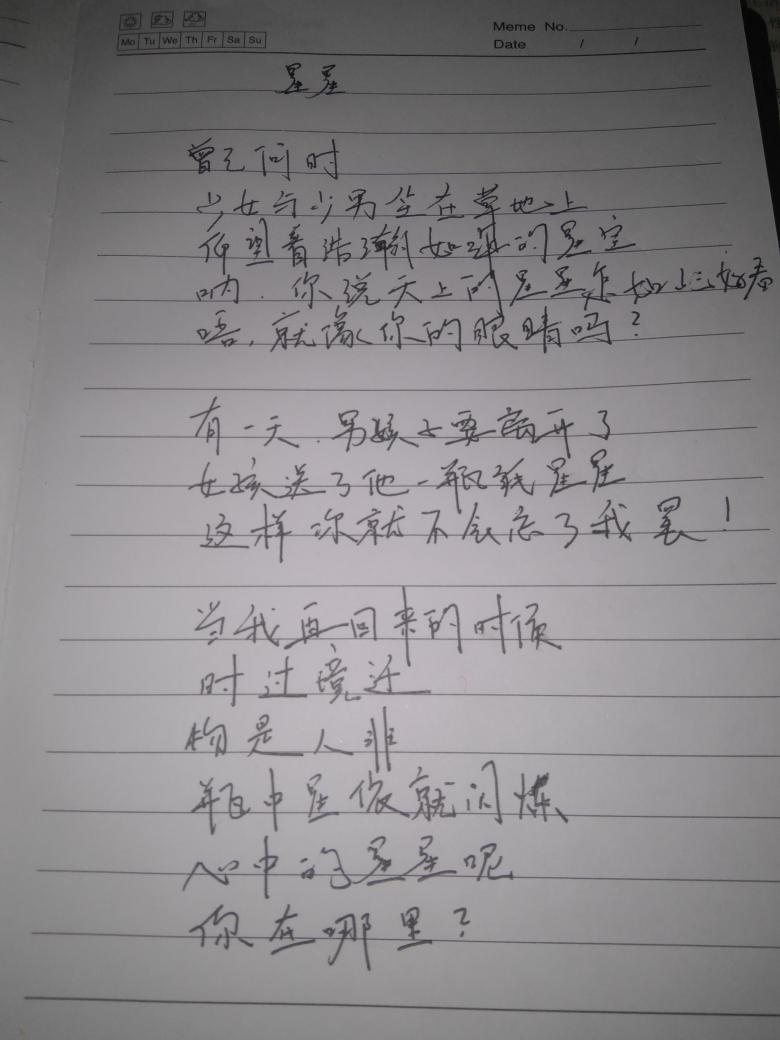 Meme No.
Mo Tu We Th Fr Sa Su
Date / /
星星
曾几何时
少女与少男坐在草地上
仰望着浩瀚如海的星空
呐，你说天上的星星怎如此好看
唔，就像你的眼睛吗？
有一天，男孩子要离开了
女孩送了他一瓶纸星星
这样你就不会忘了我罢！
当我再回来的时候
时过境迁
物是人非
瓶中星依就闪烁
心中的星星呢
你在哪里？